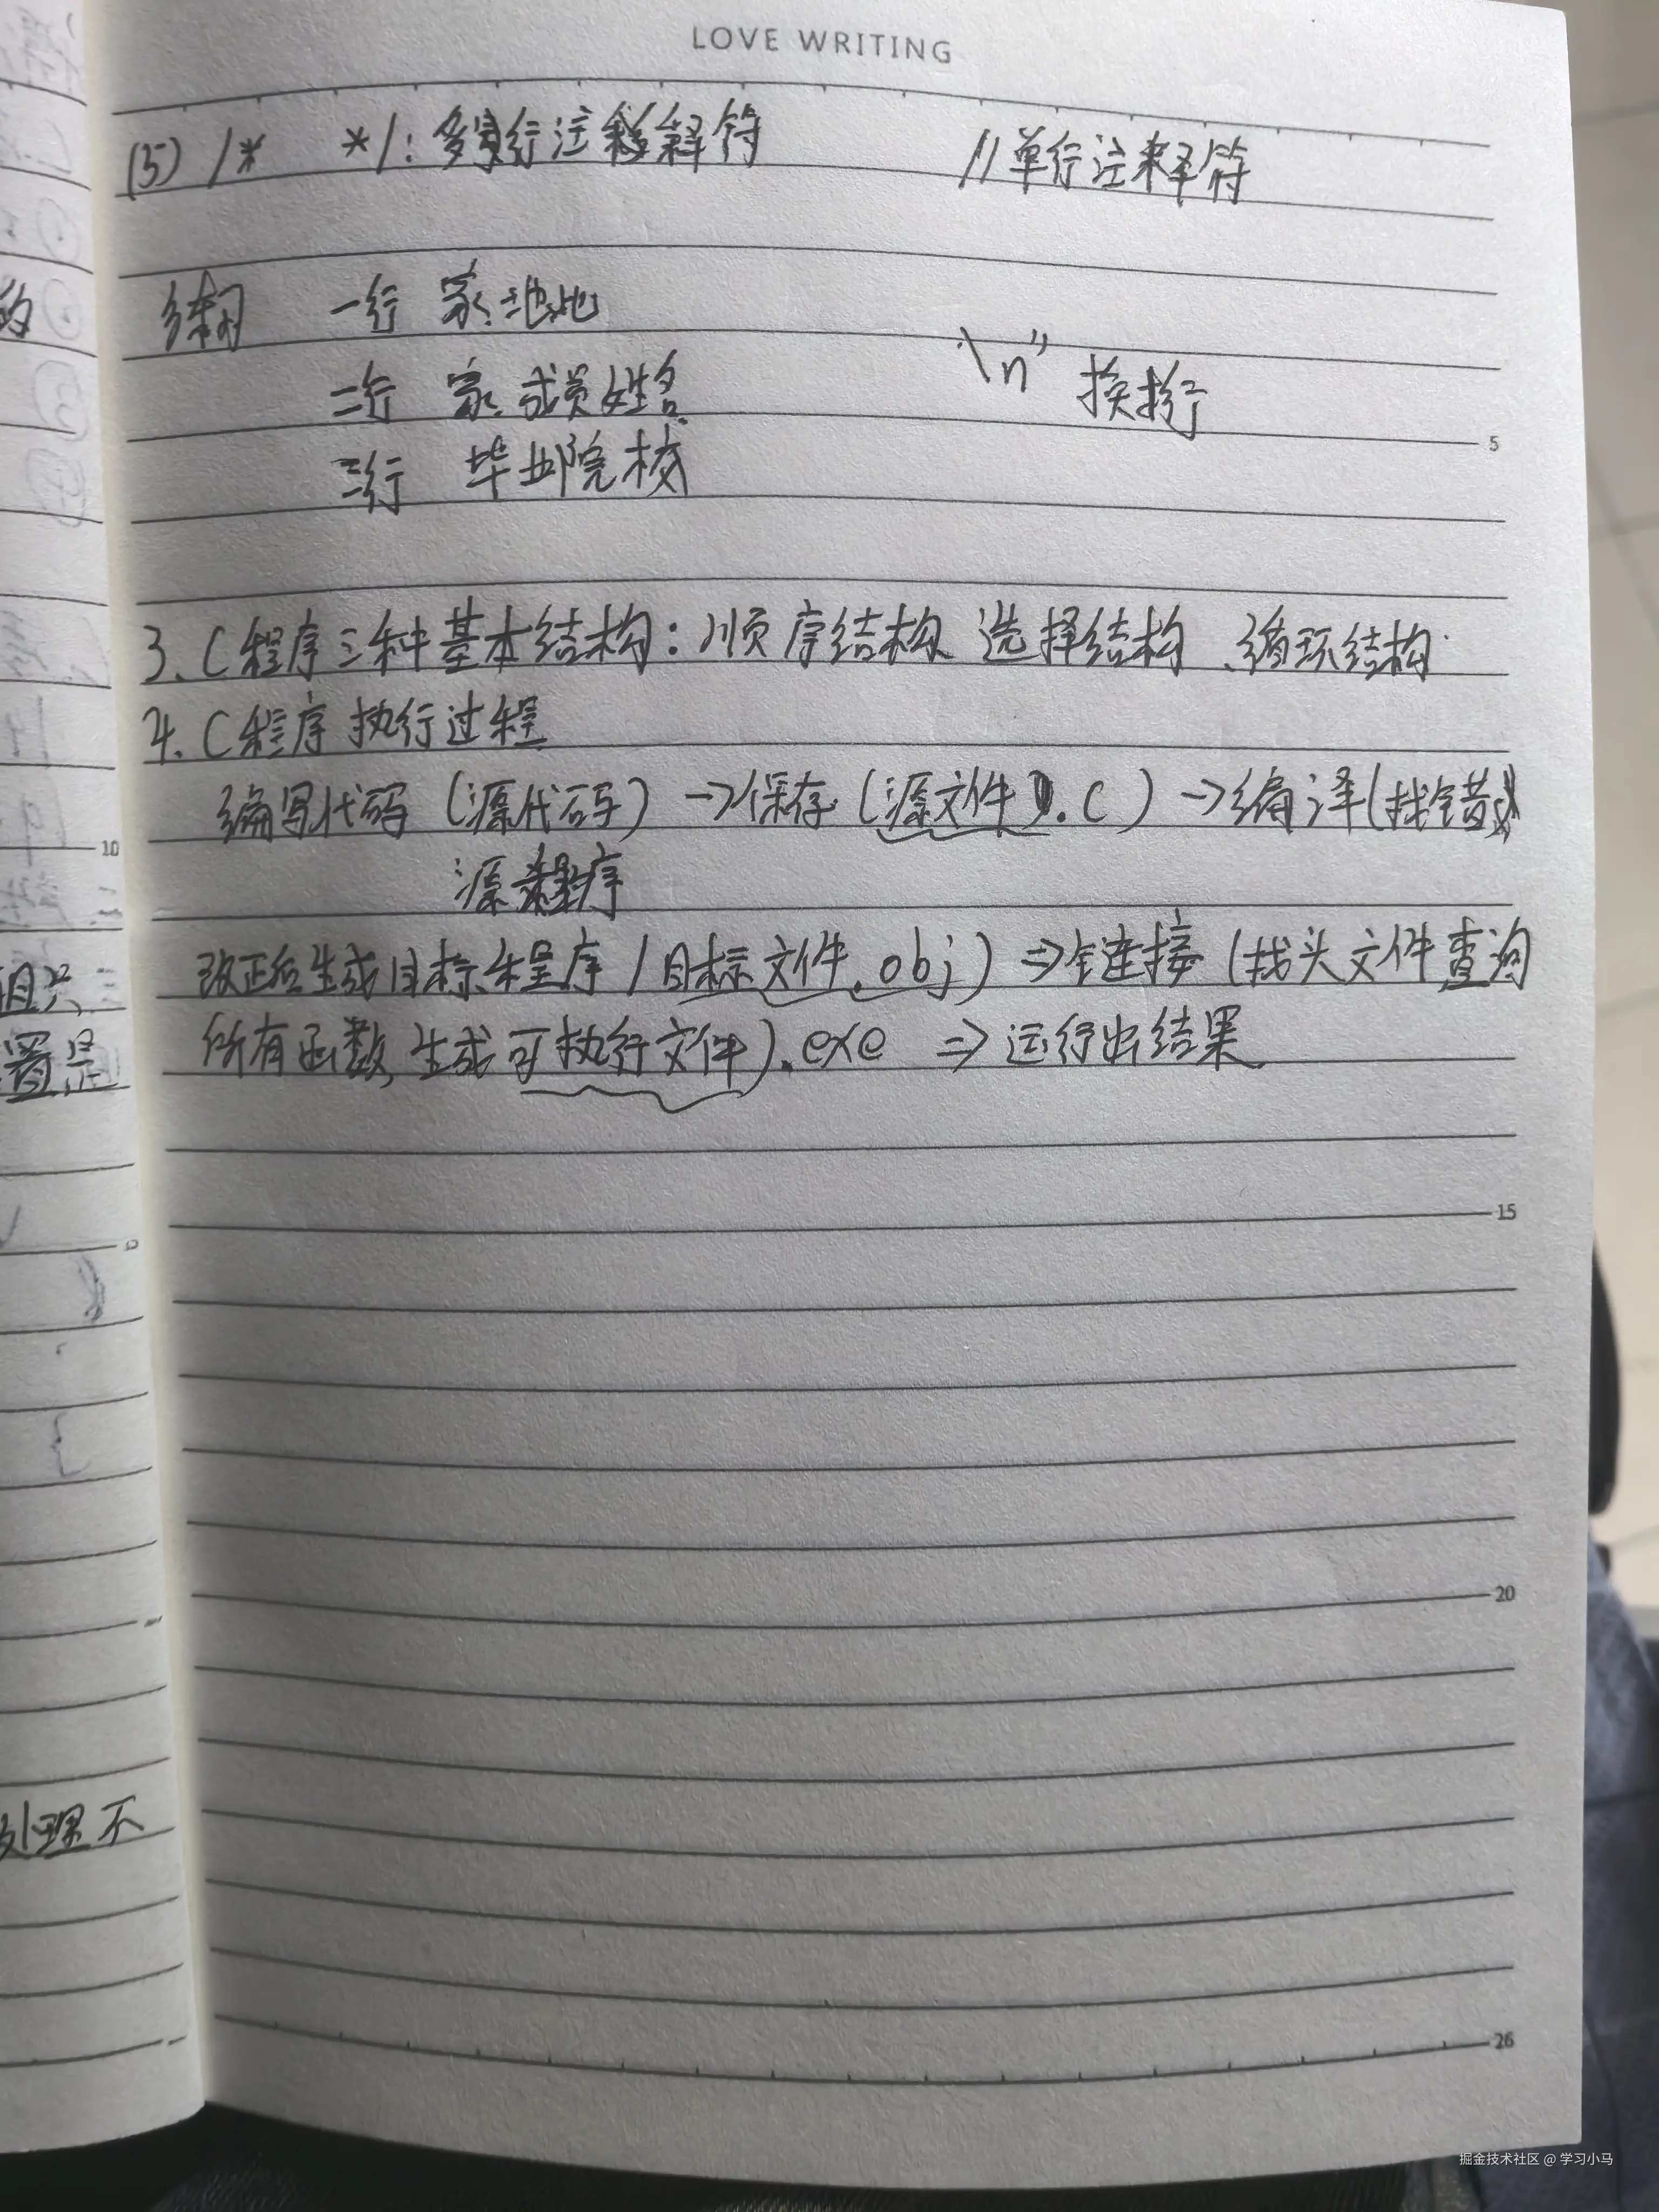 LOVE WRITING
(5) /* */: 多行注释符 //单行注释符
练习 一行 家地址
二行 家成员姓名
\n" 换行
三行 毕业院校
5
3. C程序三种基本结构: 顺序结构 选择结构、循环结构
4. C程序执行过程
编写代码 (源代码) → 保存 (源文件).C) → 编译(找错
源程序
10
改正后生成目标程序/目标文件.obj) ⇒ 链接 (找头文件,查询
所有函数,生成可执行文件).exe ⇒ 运行出结果.
的
置是
15
20
处理不
26
掘金技术社区 @ 学习小马